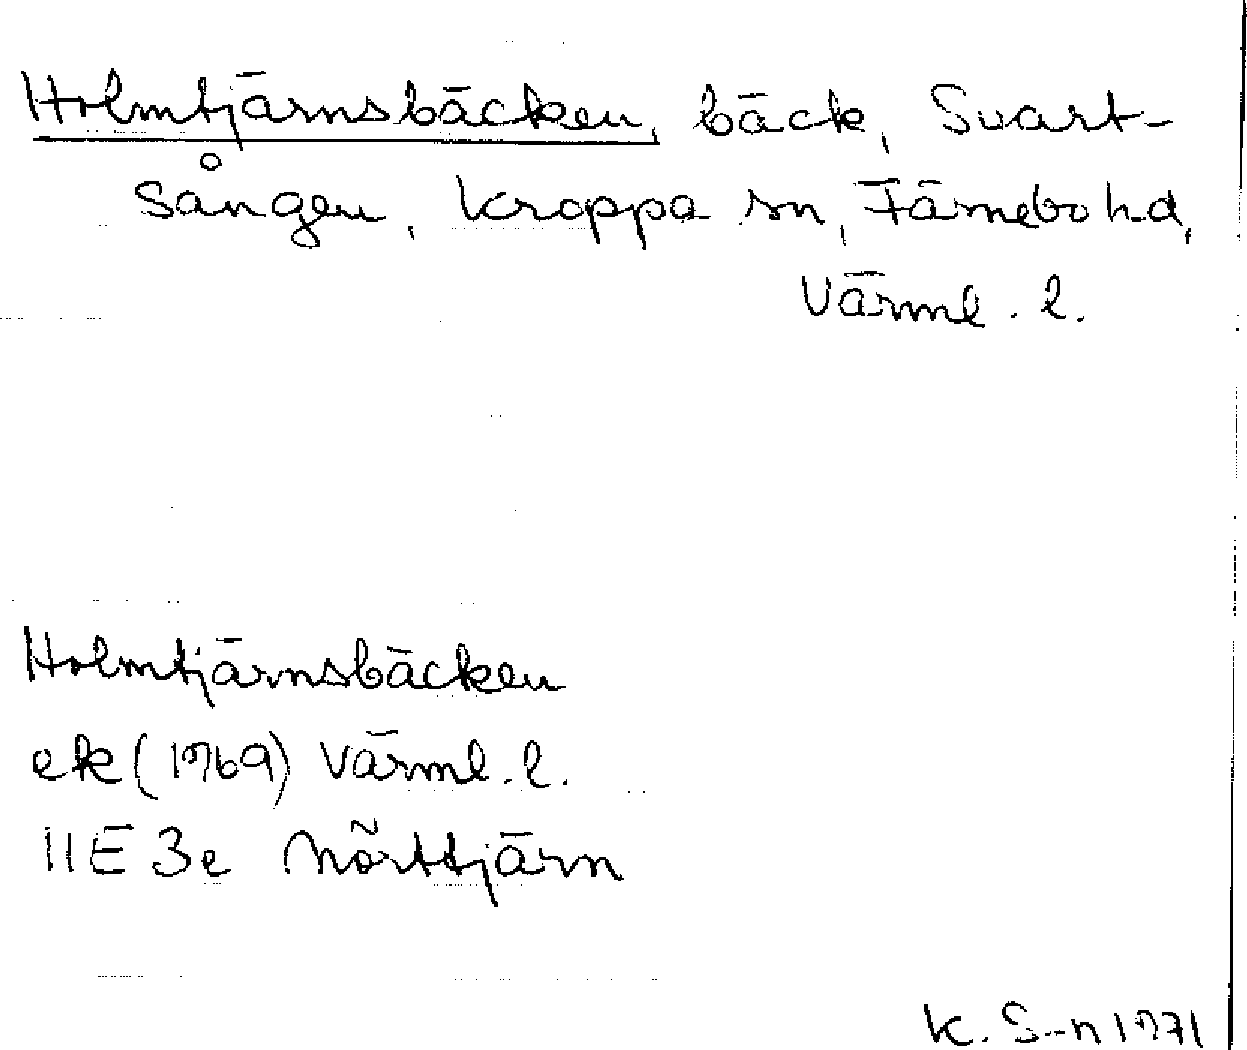 Holmtjärnsbäcken, bäck, Svart-
sången, Kroppa sn, Färnebo hd,
Värml. l.
Holmtjärnsbäcken
ek (1969) Värml. l.
11E 3e Mörttjärn
K. S-n 1971